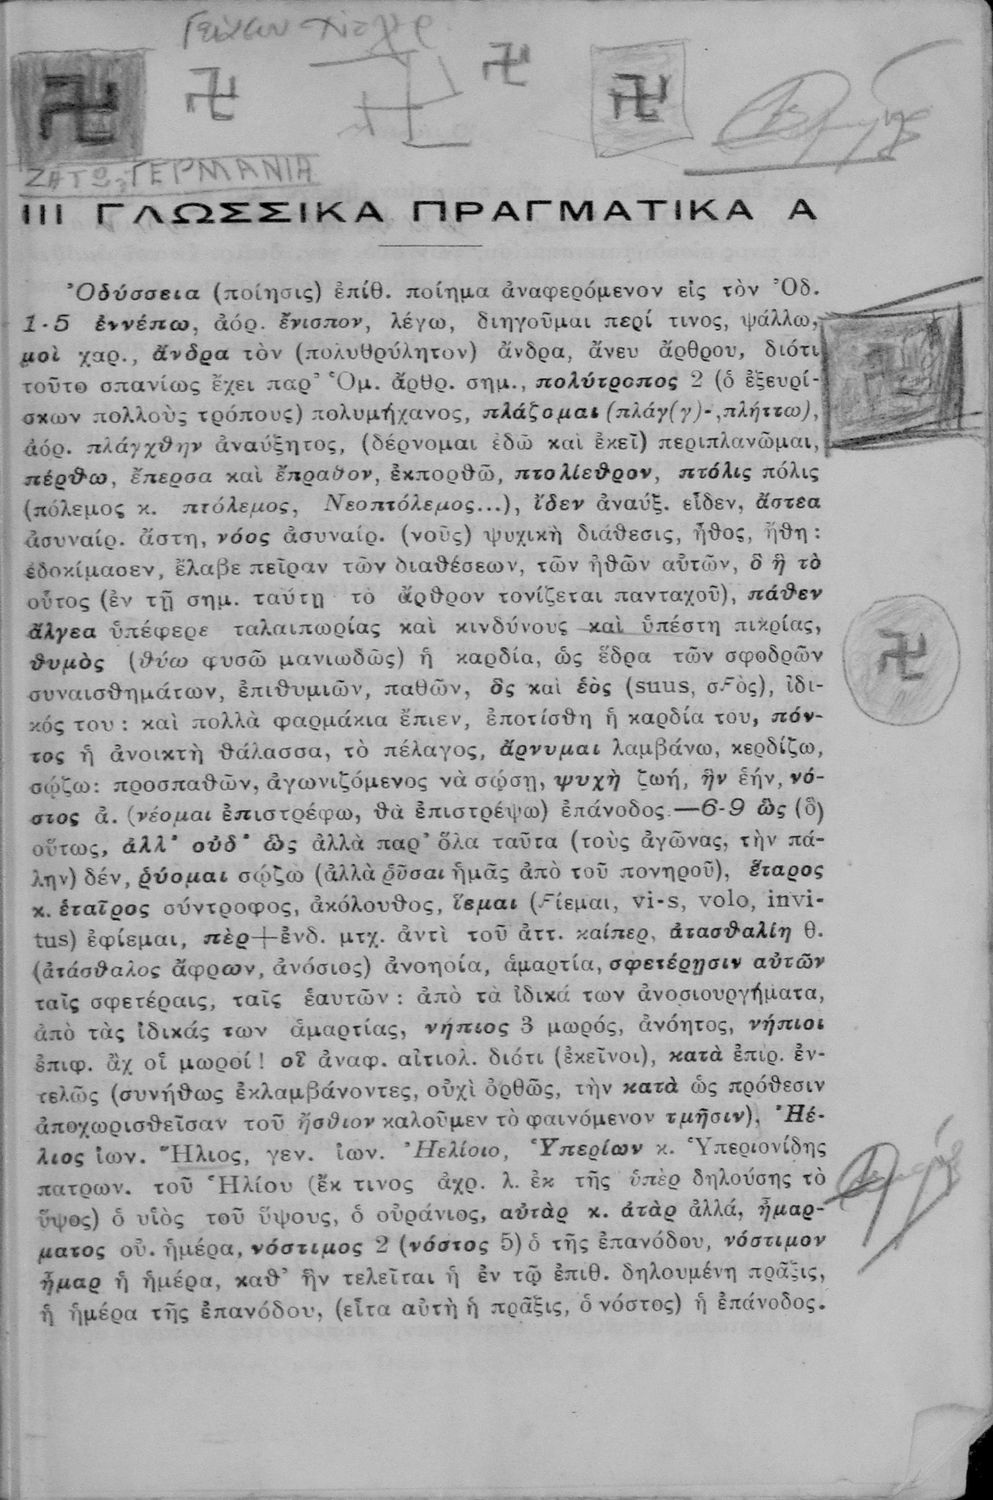 ΖΗΤΩ, ΓΕΡΜΑΝΙΑ
III ΓΛΩΣΣΙΚΑ ΠΡΑΓΜΑΤΙΚΑ Α
Ὀδύσσεια (ποίησις) ἐπίθ. ποίημα ἀναφερόμενον εἰς τὸν Ὀδ.
1-5 ἐννέπω, ἀόρ. ἔνισπον, λέγω, διηγοῦμαι περί τινος, ψάλλω,
μοὶ χαρ., ἄνδρα τὸν (πολυθρύλητον) ἄνδρα, ἄνευ ἄρθρου, διότι
τοῦτο σπανίως ἔχει παρ’ Ὁμ. ἄρθρ. σημ., πολύτροπος 2 (ὁ ἐξευρί-
σκων πολλοὺς τρόπους) πολυμήχανος, πλάζομαι (πλάγ(γ)-,πλήττω),
ἀόρ. πλάγχθην ἀναύξητος, (δέρνομαι ἐδῶ καὶ ἐκεῖ) περιπλανῶμαι,
πέρθω, ἔπερσα καὶ ἔπραθον, ἐκπορθῶ, πτολίεθρον, πτόλις πόλις
(πόλεμος κ. πτόλεμος, Νεοπτόλεμος...), ἴδεν ἀναύξ. εἶδεν, ἄστεα
ἀσυναίρ. ἄστη, νόος ἀσυναίρ. (νοῦς) ψυχικὴ διάθεσις, ἦθος, ἤθη :
ἐδοκίμασεν, ἔλαβε πεῖραν τῶν διαθέσεων, τῶν ἠθῶν αὐτῶν, ὃ ἣ τὸ
οὗτος (ἐν τῇ σημ. ταύτῃ τὸ ἄρθρον τονίζεται πανταχοῦ), πάθεν
ἄλγεα ὑπέφερε ταλαιπωρίας καὶ κινδύνους καὶ ὑπέστη πικρίας,
θυμὸς (θύω φυσῶ μανιωδῶς) ἡ καρδία, ὡς ἕδρα τῶν σφοδρῶν
συναισθημάτων, ἐπιθυμιῶν, παθῶν, ὃς καὶ ἑὸς (suus, σϜὸς), ἰδι-
κός του : καὶ πολλὰ φαρμάκια ἔπιεν, ἐποτίσθη ἡ καρδία του, πόν-
τος ἡ ἀνοικτὴ θάλασσα, τὸ πέλαγος, ἄρνυμαι λαμβάνω, κερδίζω,
σῴζω: προσπαθῶν, ἀγωνιζόμενος νὰ σῴσῃ, ψυχὴ ζωή, ἣν ἑήν, νό-
στος ἀ. (νέομαι ἐπιστρέφω, θὰ ἐπιστρέψω) ἐπάνοδος.—6-9 ὣς (ὃ)
οὕτως, ἀλλ’ οὐδ’ ὣς ἀλλὰ παρ’ ὅλα ταῦτα (τοὺς ἀγῶνας, τὴν πά-
λην) δέν, ῥύομαι σῴζω (ἀλλὰ ῥῦσαι ἡμᾶς ἀπὸ τοῦ πονηροῦ), ἕταρος
κ. ἑταῖρος σύντροφος, ἀκόλουθος, ἵεμαι (Ϝίεμαι, vi-s, volo, invi-
tus) ἐφίεμαι, πὲρ+ἐνδ. μτχ. ἀντὶ τοῦ ἀττ. καίπερ, ἀτασθαλίη θ.
(ἀτάσθαλος ἄφρων, ἀνόσιος) ἀνοησία, ἁμαρτία, σφετέρῃσιν αὐτῶν
ταῖς σφετέραις, ταῖς ἑαυτῶν : ἀπὸ τὰ ἰδικά των ἀνοσιουργήματα,
ἀπὸ τὰς ἰδικάς των ἁμαρτίας, νήπιος 3 μωρός, ἀνόητος, νήπιοι
ἐπιφ. ἂχ οἱ μωροί! οἳ ἀναφ. αἰτιολ. διότι (ἐκεῖνοι), κατὰ ἐπιρ. ἐν-
τελῶς (συνήθως ἐκλαμβάνοντες, οὐχὶ ὀρθῶς, τὴν κατὰ ὡς πρόθεσιν
ἀποχωρισθεῖσαν τοῦ ἤσθιον καλοῦμεν τὸ φαινόμενον τμῆσιν), Ἠέ-
λιος ἰων. Ἥλιος, γεν. ἰων. Ἠελίοιο, Ὑπερίων κ. Ὑπεριονίδης
πατρων. τοῦ Ἡλίου (ἔκ τινος ἀχρ. λ. ἐκ τῆς ὑπὲρ δηλούσης τὸ
ὕψος) ὁ υἱὸς τοῦ ὕψους, ὁ οὐράνιος, αὐτὰρ κ. ἀτὰρ ἀλλά, ἦμαρ-
ματος οὐ. ἡμέρα, νόστιμος 2 (νόστος 5) ὁ τῆς ἐπανόδου, νόστιμον
ἦμαρ ἡ ἡμέρα, καθ’ ἣν τελεῖται ἡ ἐν τῷ ἐπιθ. δηλουμένη πρᾶξις,
ἡ ἡμέρα τῆς ἐπανόδου, (εἶτα αὐτὴ ἡ πρᾶξις, ὁ νόστος) ἡ ἐπάνοδος.